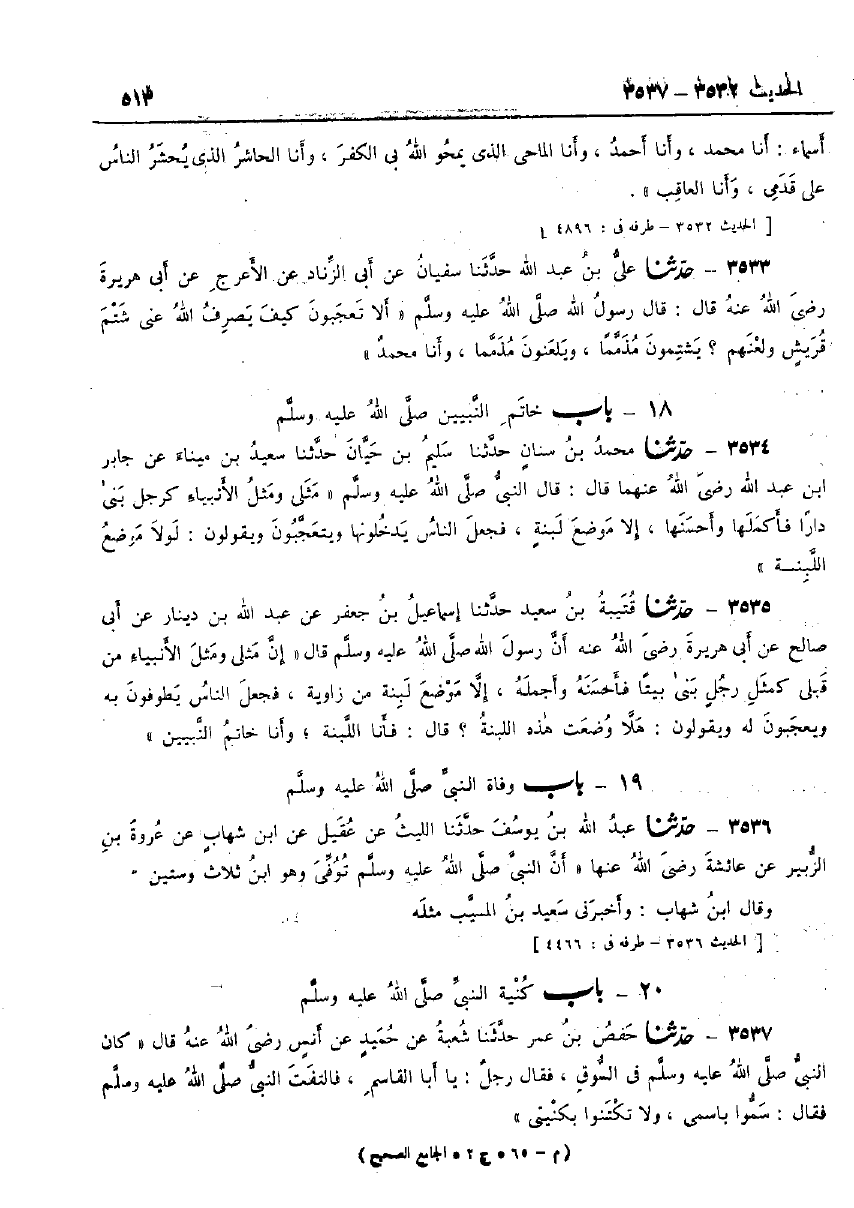 الحديث ٣٥٣٢ – ٣٥٣٧ ٥١٣
أسماء : أنا محمد ، وأنا أحمدُ ، وأنا الماحى الذى يمحُو اللهُ بى الكفرَ ، وأنا الحاشرُ الذى يُحشَرُ الناسُ
على قَدَمِى ، وَأنا العاقِب » .
[ الحديث ٣٥٣٢ – طرفه فى : ٤٨٩٦ ]
٣٥٣٣ – حدّثنا علىُّ بنُ عبد الله حدَّثَنا سفيانُ عن أبى الزِّناد عن الأعرجِ عن أبى هريرةَ
رضىَ اللهُ عنهُ قال : قال رسولُ الله صلَّى اللهُ عليه وسلَّم « ألا تَعجَبونَ كيفَ يَصرِفُ اللهُ عنى شَتْمَ
قُرَيشٍ ولَعْنَهم ؟ يَشتِمونَ مُذمَّمًا ، ويَلعَنونَ مُذمَّما ، وأنا محمدٌ »
١٨ – باب خاتَمِ النَّبيين صلَّى اللهُ عليه وسلَّم
٣٥٣٤ – حدّثنا محمدُ بنُ سنانٍ حدَّثنا سَليمُ بن حَيَّانَ حدَّثَنا سعيدُ بن ميناءَ عن جابر
ابن عبد الله رضىَ اللهُ عنهما قال : قال النبىُّ صلَّى اللهُ عليه وسلَّم « مَثَلى ومَثلُ الأنبياءِ كرجل بَنىٰ
دارًا فأكمَلَها وأحسَنَها ، إلا مَوضعَ لَبنةٍ ، فجعلَ الناسُ يَدخُلونها ويتعَجَّبُونَ ويقولون : لَولاَ مَوضعُ
اللَّبِنـة »
٣٥٣٥ – حدّثنا قُتَيبةُ بنُ سعيد حدَّثنا إسماعيلُ بنُ جعفر عن عبد الله بن دينار عن أبى
صالح عن أبى هريرةَ رضىَ اللهُ عنه أنَّ رسولَ الله صلَّى اللهُ عليه وسلَّم قال « إنَّ مَثلى ومَثلَ الأنبياء من
قَبلى كمثَلِ رجُلٍ بَنىٰ بيتًا فأحسَنَهُ وأجملَهُ ، إلَّا مَوْضعَ لَبِنة من زاوية ، فجعلَ الناسُ يَطوفونَ به
ويعجَبونَ له ويقولون : هَلَّا وُضعَت هٰذه اللبنةُ ؟ قال : فأنا اللَّبنة ؛ وأنا خاتمُ النَّبيين »
١٩ – باب وفاة النبىِّ صلَّى اللهُ عليه وسلَّم
٣٥٣٦ – حدّثنا عبدُ الله بنُ يوسُفَ حدَّثَنا الليثُ عن عُقَيل عن ابن شهابٍ عن عُروةَ بنِ
الزُّبير عن عائشةَ رضىَ اللهُ عنها « أنَّ النبىَّ صلَّى اللهُ عليه وسلَّم تُوُفِّىَ وهو ابنُ ثلاث وستين »
وقال ابنُ شهاب : وأخبرَنى سَعيد بنُ المسيَّب مثلَه
[ الحديث ٣٥٣٦ – طرفه فى : ٤٤٦٦ ]
٢٠ – باب كُنْية النبىِّ صلَّى اللهُ عليه وسلَّم
٣٥٣٧ – حدّثنا حَفصُ بنُ عمر حدَّثَنا شُعبةُ عن حُمَيدٍ عن أنَسٍ رضىَ اللهُ عنهُ قال « كان
النبىُّ صلَّى اللهُ عليه وسلَّم فى السُّوقِ ، فقال رجلٌ : يا أبا القاسمِ ، فالتفَتَ النبىُّ صلَّى اللهُ عليه وسلَّم
فقال : سَمُّوا باسمى ، ولا تكْتَنوا بكنْيتى »
( م – ٦٥ • ج ٢ • الجامع الصحيح )